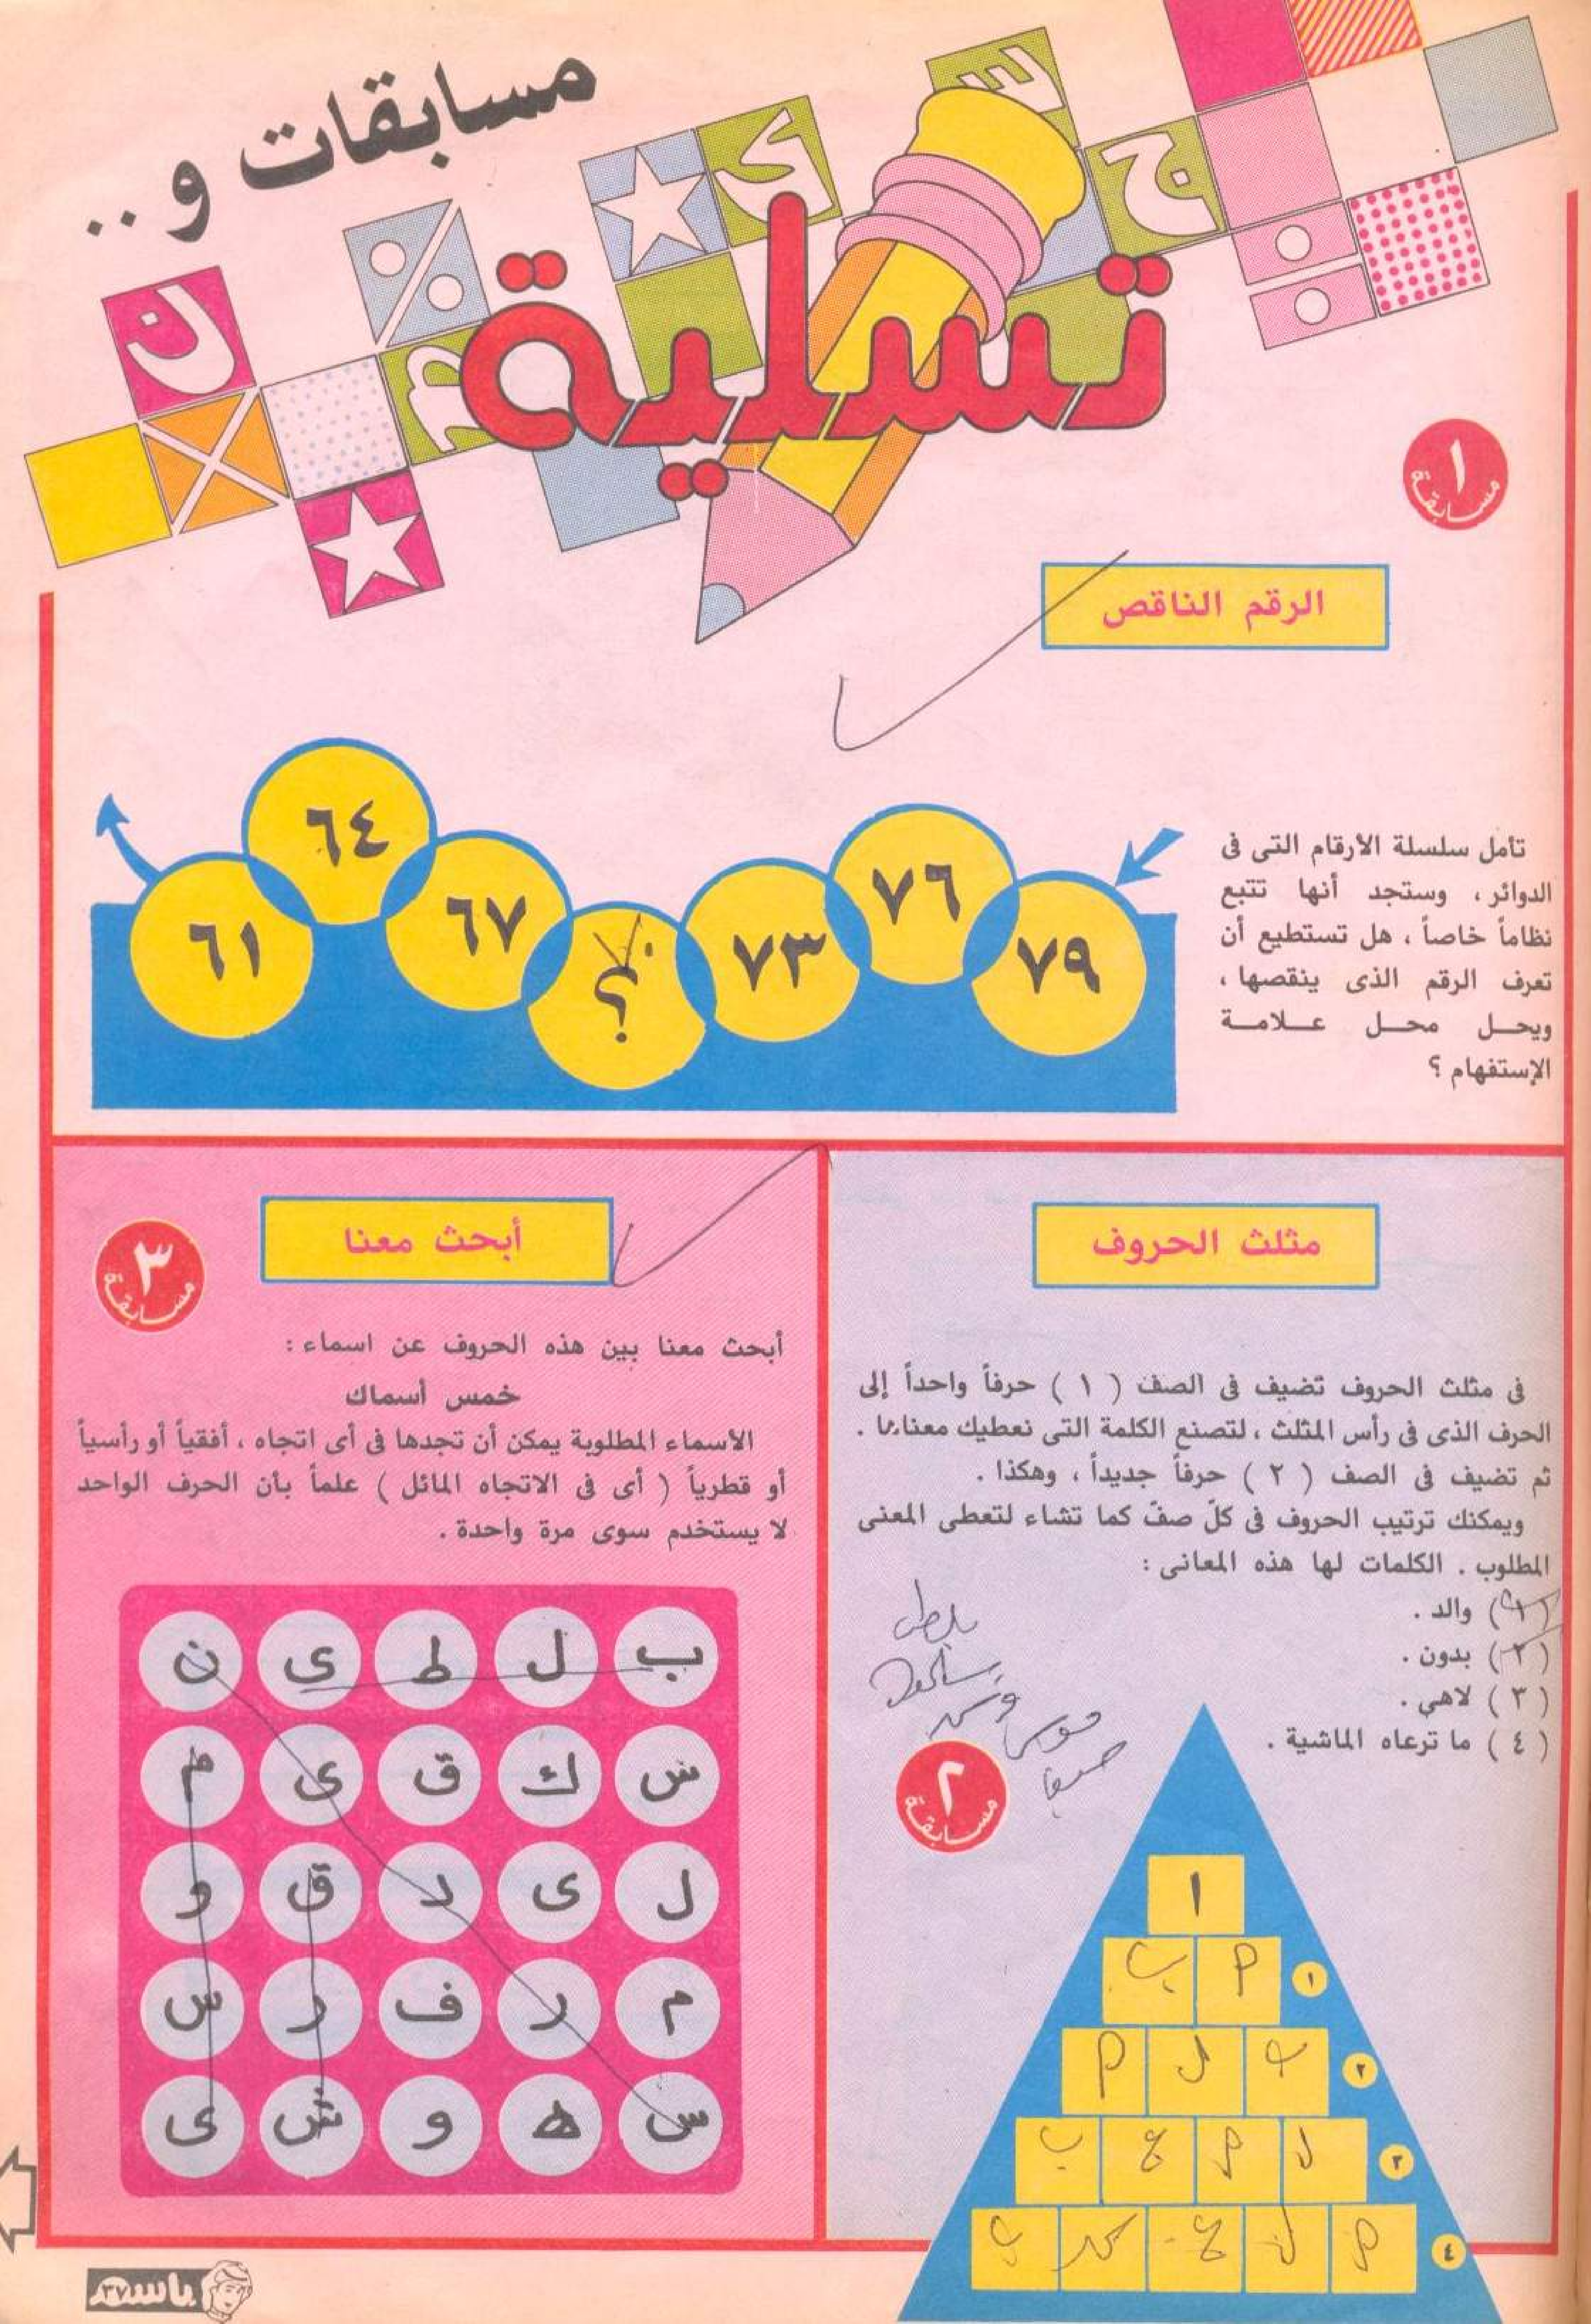 مسابقات و..
تسلية
١
مسابقة
الرقم الناقص
تأمل سلسلة الأرقام التى فى
الدوائر، وستجد أنها تتبع
نظاماً خاصاً، هل تستطيع أن
تعرف الرقم الذى ينقصها،
ويحـل محـل عـلامـة
الإستفهام ؟
٧٩
٧٦
٧٣
؟
٦٧
٦٤
٦١
مثلث الحروف
فى مثلث الحروف تضيف فى الصف ( ١ ) حرفاً واحداً إلى
الحرف الذى فى رأس المثلث، لتصنع الكلمة التى نعطيك معناها.
ثم تضيف فى الصف ( ٢ ) حرفاً جديداً، وهكذا.
ويمكنك ترتيب الحروف فى كلّ صفّ كما تشاء لتعطى المعنى
المطلوب. الكلمات لها هذه المعانى:
( ١ ) والد.
( ٢ ) بدون.
( ٣ ) لاهي.
( ٤ ) ما ترعاه الماشية.
٢
مسابقة
ا
١
٢
٣
٤
أبحث معنا
٣
مسابقة
أبحث معنا بين هذه الحروف عن اسماء:
خمس أسماك
الأسماء المطلوبة يمكن أن تجدها فى أى اتجاه، أفقياً أو رأسياً
أو قطرياً ( أى فى الاتجاه المائل ) علماً بأن الحرف الواحد
لا يستخدم سوى مرة واحدة.
ب ل ط ى ن
ش ك ق ى م
ل ى د ق و
م ر ف ر س
س ه و ش ى
باسم
٣٧